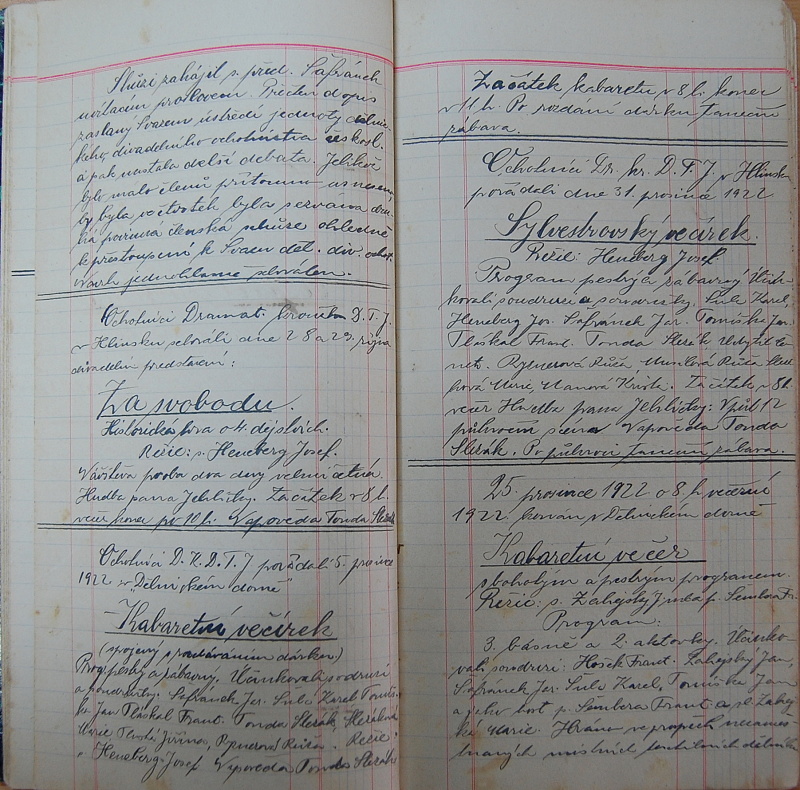 Schůzi zahájil s. před. Šafránek
uvítacím proslovem. Přečten dopis
zaslaný Svazem ústředí jednoty dělnic-
kého divadelního ochotnictva českosl.
a pak nastala delší debata. Jelikož
bylo málo členů přítomno
by byla ve čtvrtek byla svolána dru-
há povinná členská schůze ohledně
k přestoupení k Svazu děl. div. ochot.
Návrh jednohlasně schválen.
Ochotníci Dramat. kroužku D. T. J.
v Hlinsku sehráli dne 28 a 29. října
divadelní představení:
Za svobodu.
Historická hra o 4. dějstvích.
Režie: s. Heneberg Josef.
Návštěva po oba dva dny velmi četná
Hudba pana Jehličky. Začátek v 8 h.
večer konec po 10 h. Napověda Tonda Slerák
Ochotníci D. K. D. T. J pořádali 5. prosince
1922 v "Dělnickém domě"
Kabaretní večírek
(spojený s rozdáváním dárků)
Prog. pestrý a zábavný. Účinkovali soudruzi
a soudružky. Šafránek Jar. Šulc Karel Tomiš-
ka Jan Pláskal Frant. Tonda Slerák, Sleráková
Marie Jiřina, Rypnerová Růžena. Režie:
s. Heneberg Josef Napověda Tonda Slerák
Začátek kabaretu v 8 h. konec
v 11 h. Po rozdání dárků taneční
zábava.
Ochotníci Dr. kr. D. T. J. v Hlinsku
pořádali dne 31. prosince 1922
Sylvestrovský večírek.
Režie: Heneberg Josef.
Program pestrý a zábavný Účin-
kovali soudruzi a soudružky. Šulc Karel,
Heneberg Jos. Šafránek Jar. Tomiška Jan
Pláskal Frant. Tonda Slerák
Rypnerová Růža, Musilová Růža.
Marie, Manová Krista. Začátek v 8 h.
večer Hudba pana Jehličky: V půl 12
půlnoční scéna Napověda Tonda
Slerák. Po půlnoci taneční zábava.
25. prosince 1922 o 8 h. večerní
1922 konán v Dělnickém domě
Kabaretní večer
s bohatým a pestrým programem.
Režie: s. Zahejský Jan a p. Sembera Fr.
Program:
3. básně a 2. aktovky. Účinko-
vali soudruzi: Hosek Frant. Zahejský Jan,
Šafránek Jar. Šulc Karel, Tomiška Jan
a jako host p. Sembera Frant. a sl. Zahej-
ská Marie. Hráno ve prospěch nezaměst-
naných místních textilních dělníků